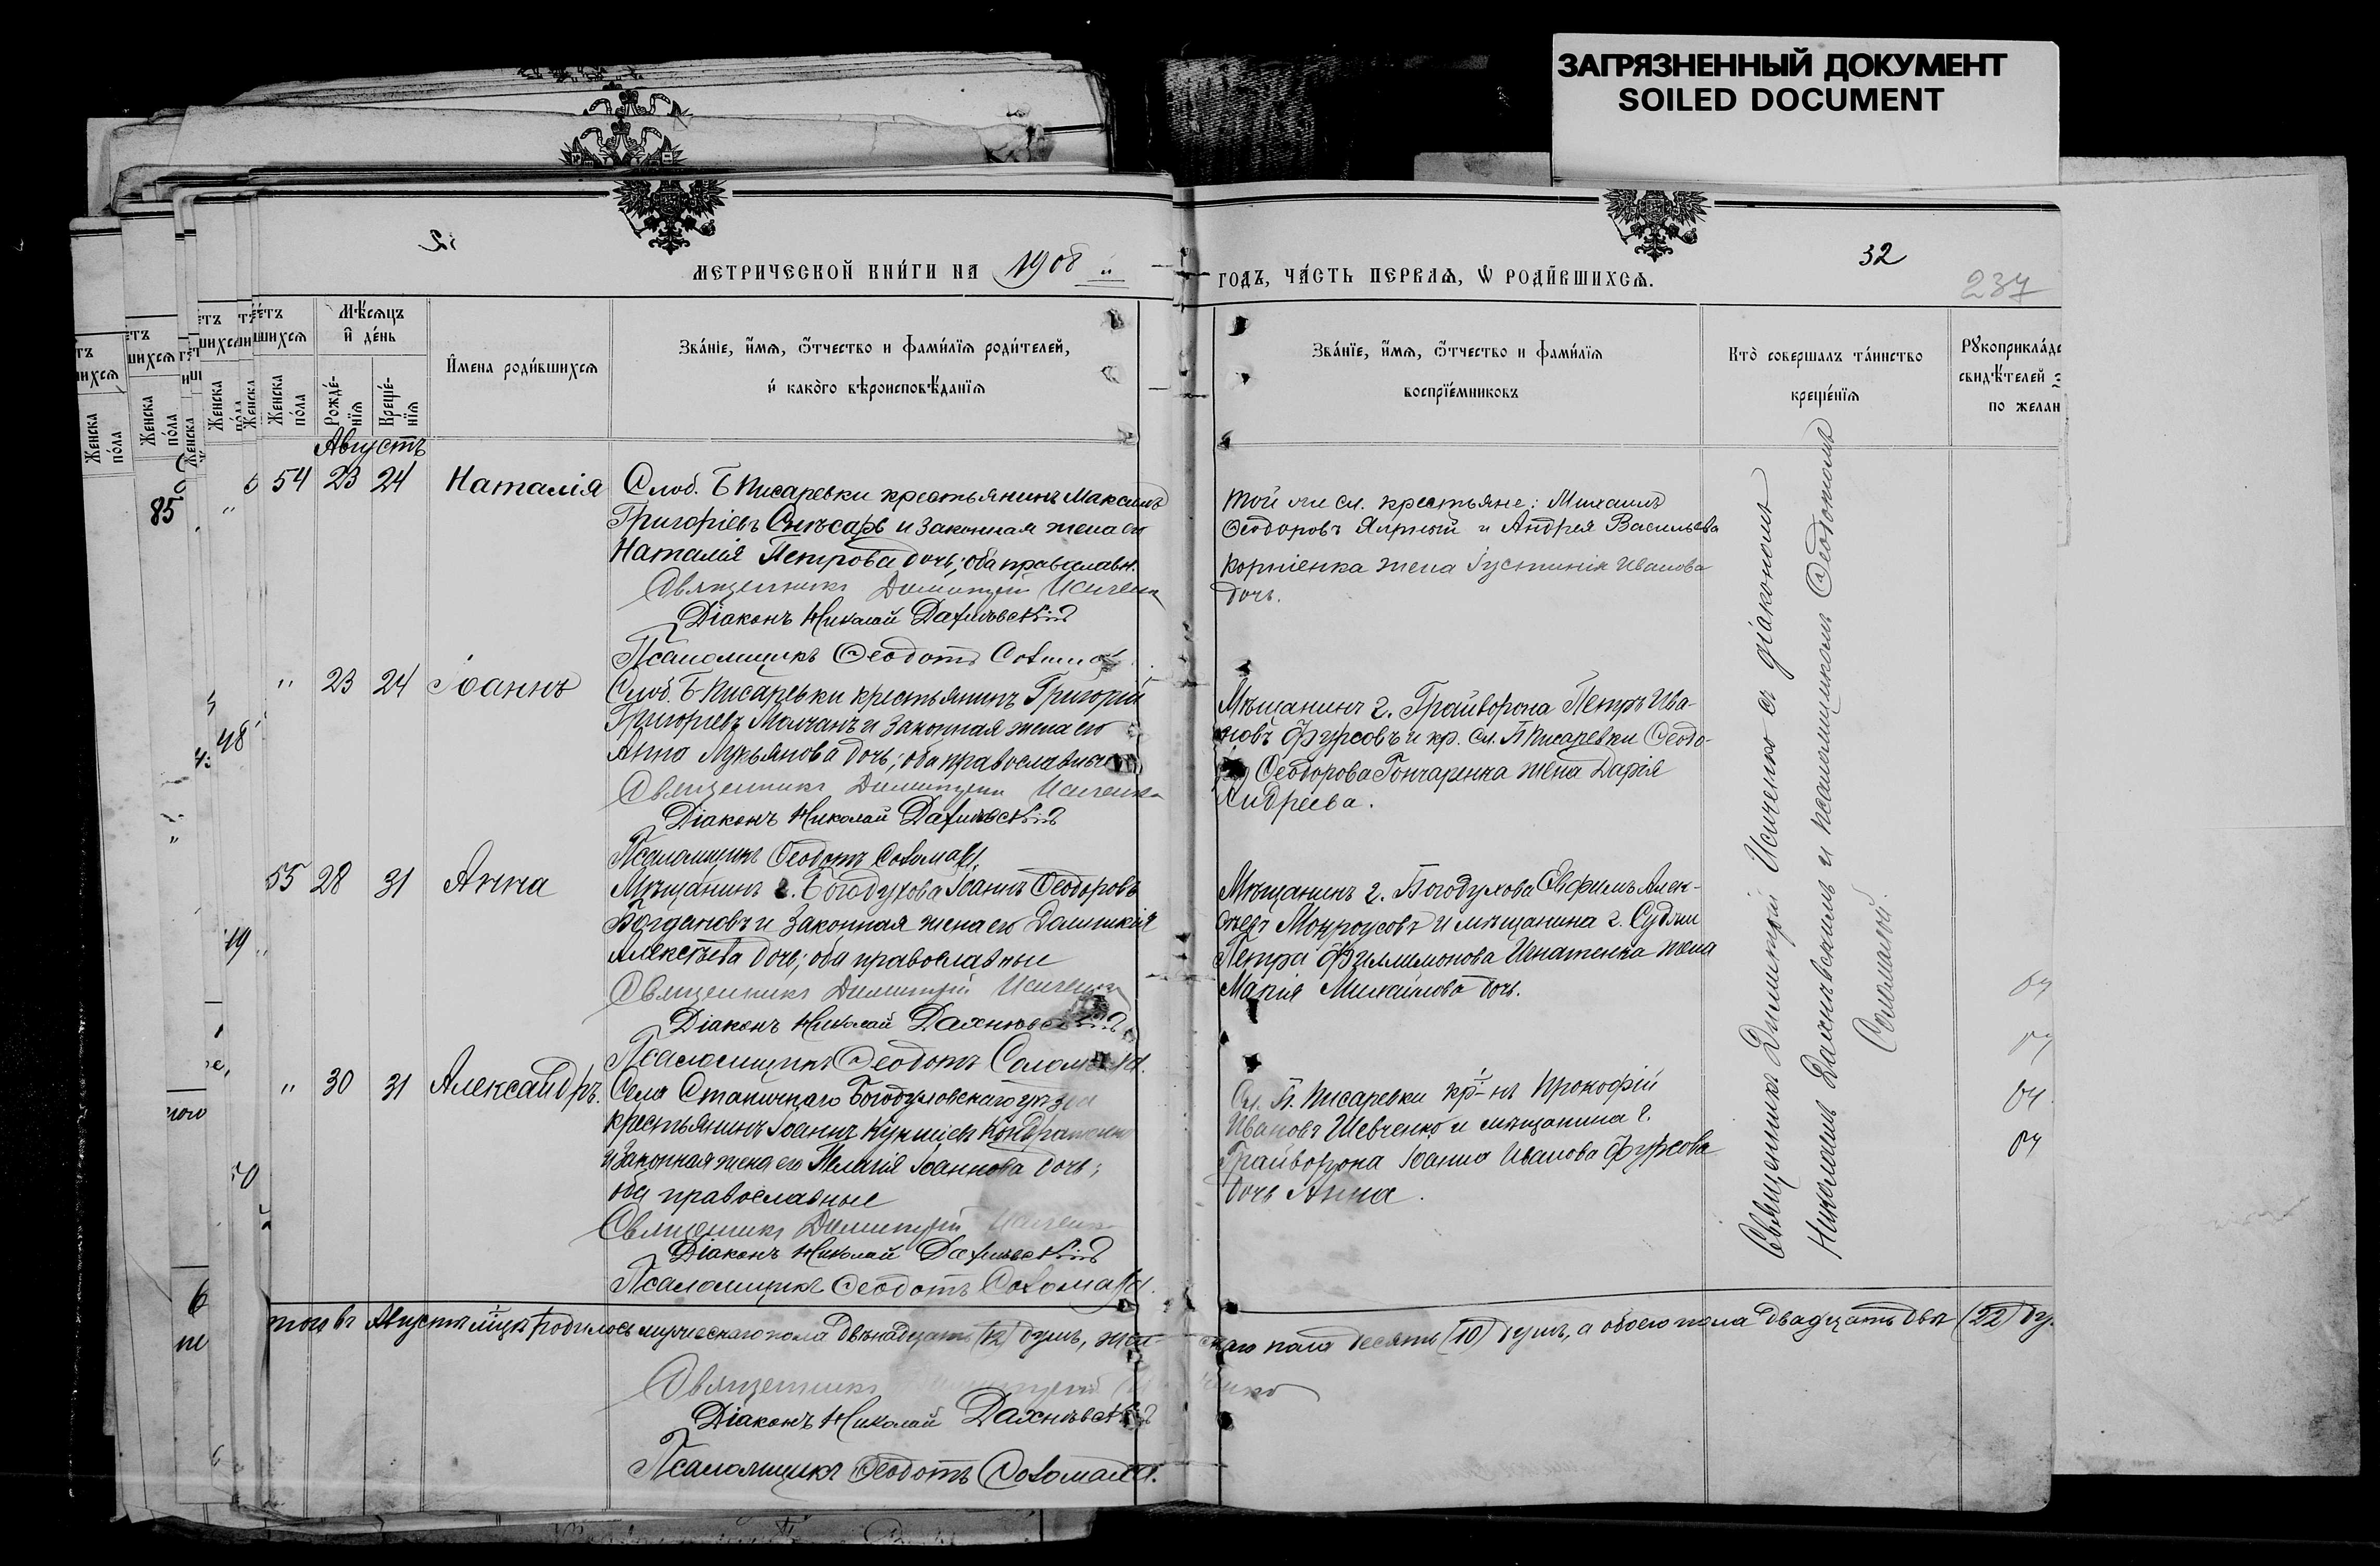 ЗАГРЯЗНЕННЫЙ ДОКУМЕНТ
SOILED DOCUMENT
32
МЕТРИЧЕСКОЙ КНИ́ГИ НА 1908
ГОДЪ, ЧА́СТЬ ПЕРВАѦ, Ѡ РОДИ́ВШИХСѦ.
32
237
Женска по́ла
Мѣ́сѧцъ и҆ де́нь
Рожде́нїѧ
Креще́нїѧ
И҆мена роди́вшихсѧ
Зва́нїе, и҆́мѧ, ѻ҆́тчество и фами́лїѧ роди́телей,
и҆ како́го вѣроисповѣ́данїѧ
Зва́нїе, и҆́мѧ, ѻ҆́тчество и фами́лїѧ
воспрїе́мниковъ
Кто̀ соверша́лъ та́инство
креще́нїѧ
Рꙋкоприкла́д
свидѣ́телей
по желан
Августъ
54 23 24 Наталія
Слоб. Б Писаревки крестьянинъ Максимъ
Григоріевъ Слѣсарь и законная жена его
Наталія Петрова дочь; оба православн.
Священникъ Димитрій Исиченко
Діаконъ Николай Дахнѣвскій
Псаломщикъ Ѳеодотъ Соломаха
Той же сл. крестьяне: Михаилъ
Ѳеодоровъ и Андрея Васильева
Корніенка жена Іустинія Иванова
дочь.
" 23 24 Іоаннъ
Слоб. Б Писаревки крестьянинъ Григорій
Григоріевъ Молчанъ и законная жена его
Анна Лукьянова дочь; оба православные
Священникъ Димитрій Исиченко
Діаконъ Николай Дахнѣвскій
Псаломщикъ Ѳеодотъ
Мѣщанинъ г. Грайворона Петръ Ива-
новъ Фурсовъ и кр. сл. Б Писаревки Ѳеодо-
Ѳеодорова Гончаренка жена Дарія
Андреева.
55 28 31 Анна
Мѣщанинъ г. Богодухова Іоаннъ Ѳеодоровъ
Богдановъ и законная жена его Домникія
Алексѣева дочь; оба православные
Священникъ Димитрій Исиченко
Діаконъ Николай Дахнѣвскій
Псаломщикъ Ѳеодотъ
Мѣщанинъ г. Богодухова Евфимъ Алек-
сѣевъ и мѣщанина г. Суджи
Петра Филлимонова Игнатенка жена
Марія Михайлова дочь.
" 30 31 Александръ.
Села Станичнаго Богодуховскаго уѣзда
крестьянинъ Іоаннъ
и законная жена его Пелагія Іоаннова дочь;
оба православные
Священникъ Димитрій Исиченко
Діаконъ Николай Дахнѣвскій
Псаломщикъ Ѳеодотъ
Сл. Б. Писаревки кр-нъ Прокофій
Ивановъ Шевченко и мѣщанина г.
Грайворона Іоанна Иванова Фурсова
дочь Анна.
Священникъ Димитрій Исиченко съ діакономъ
Николаемъ Дахнѣвскимъ и псаломщикомъ Ѳеодотомъ
въ Августѣ мцѣ родилось мужескаго пола двѣнадцать (12) душъ, жен-
скаго пола десять (10) душъ, а обоего пола двадцать двѣ (22) ду.
Священникъ
Діаконъ Николай Дахнѣвскій
Псаломщикъ Ѳеодотъ